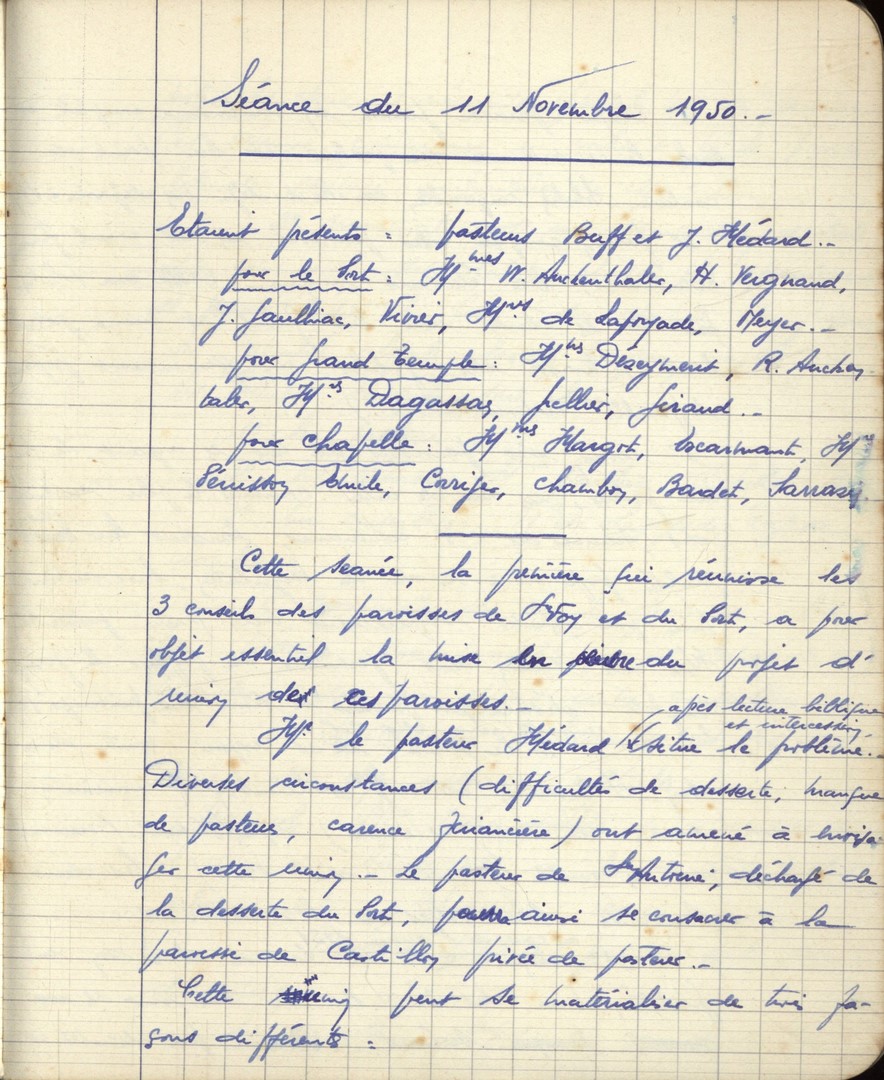 Séance du 11 Novembre 1950.-
Etaient présents : pasteurs Buffet J. Médard.-
pour le Port : MMmes W. Auckenthaler, H. Vergnaud,
J. Gaulhiac, Vivier, MMrs de Lafoyade, Meyer.-
pour Grand Temple : MMmes R. Aucken-
taler, MMrs Dagassan, Pellier, Giraud.-
pour Chapelle : MMmes Margot, Escarmant, MMrs
Pénisson Emile, Corriger, Chambon, Bardet, Sarrazy.
Cette séance, la première qui réunisse les
3 conseils des paroisses de Ste Foy et du Port, a pour
objet essentiel la mise en œuvre du projet d'
union des paroisses.-
après lecture biblique
et intercession
Mr. le pasteur Médard situe le problème.
Diverses circonstances (difficultés de desserte, manque
de pasteur, carence financière) ont amené à envisa-
ger cette union.- Le pasteur de St Antoine, déchargé de
la desserte du Port, pourra ainsi se consacrer à la
paroisse de Castillon privée de pasteur.-
Cette union peut se matérialiser de trois fa-
çons différents :